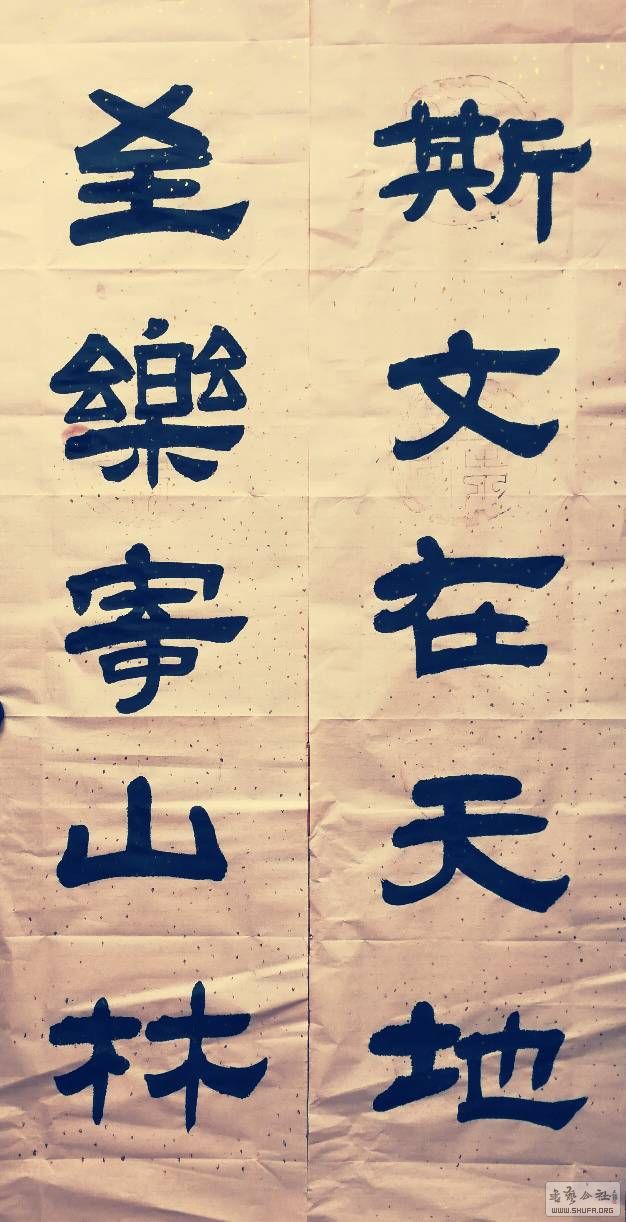 斯文在天地
至樂寄山林
WWW.SHUFA.ORG